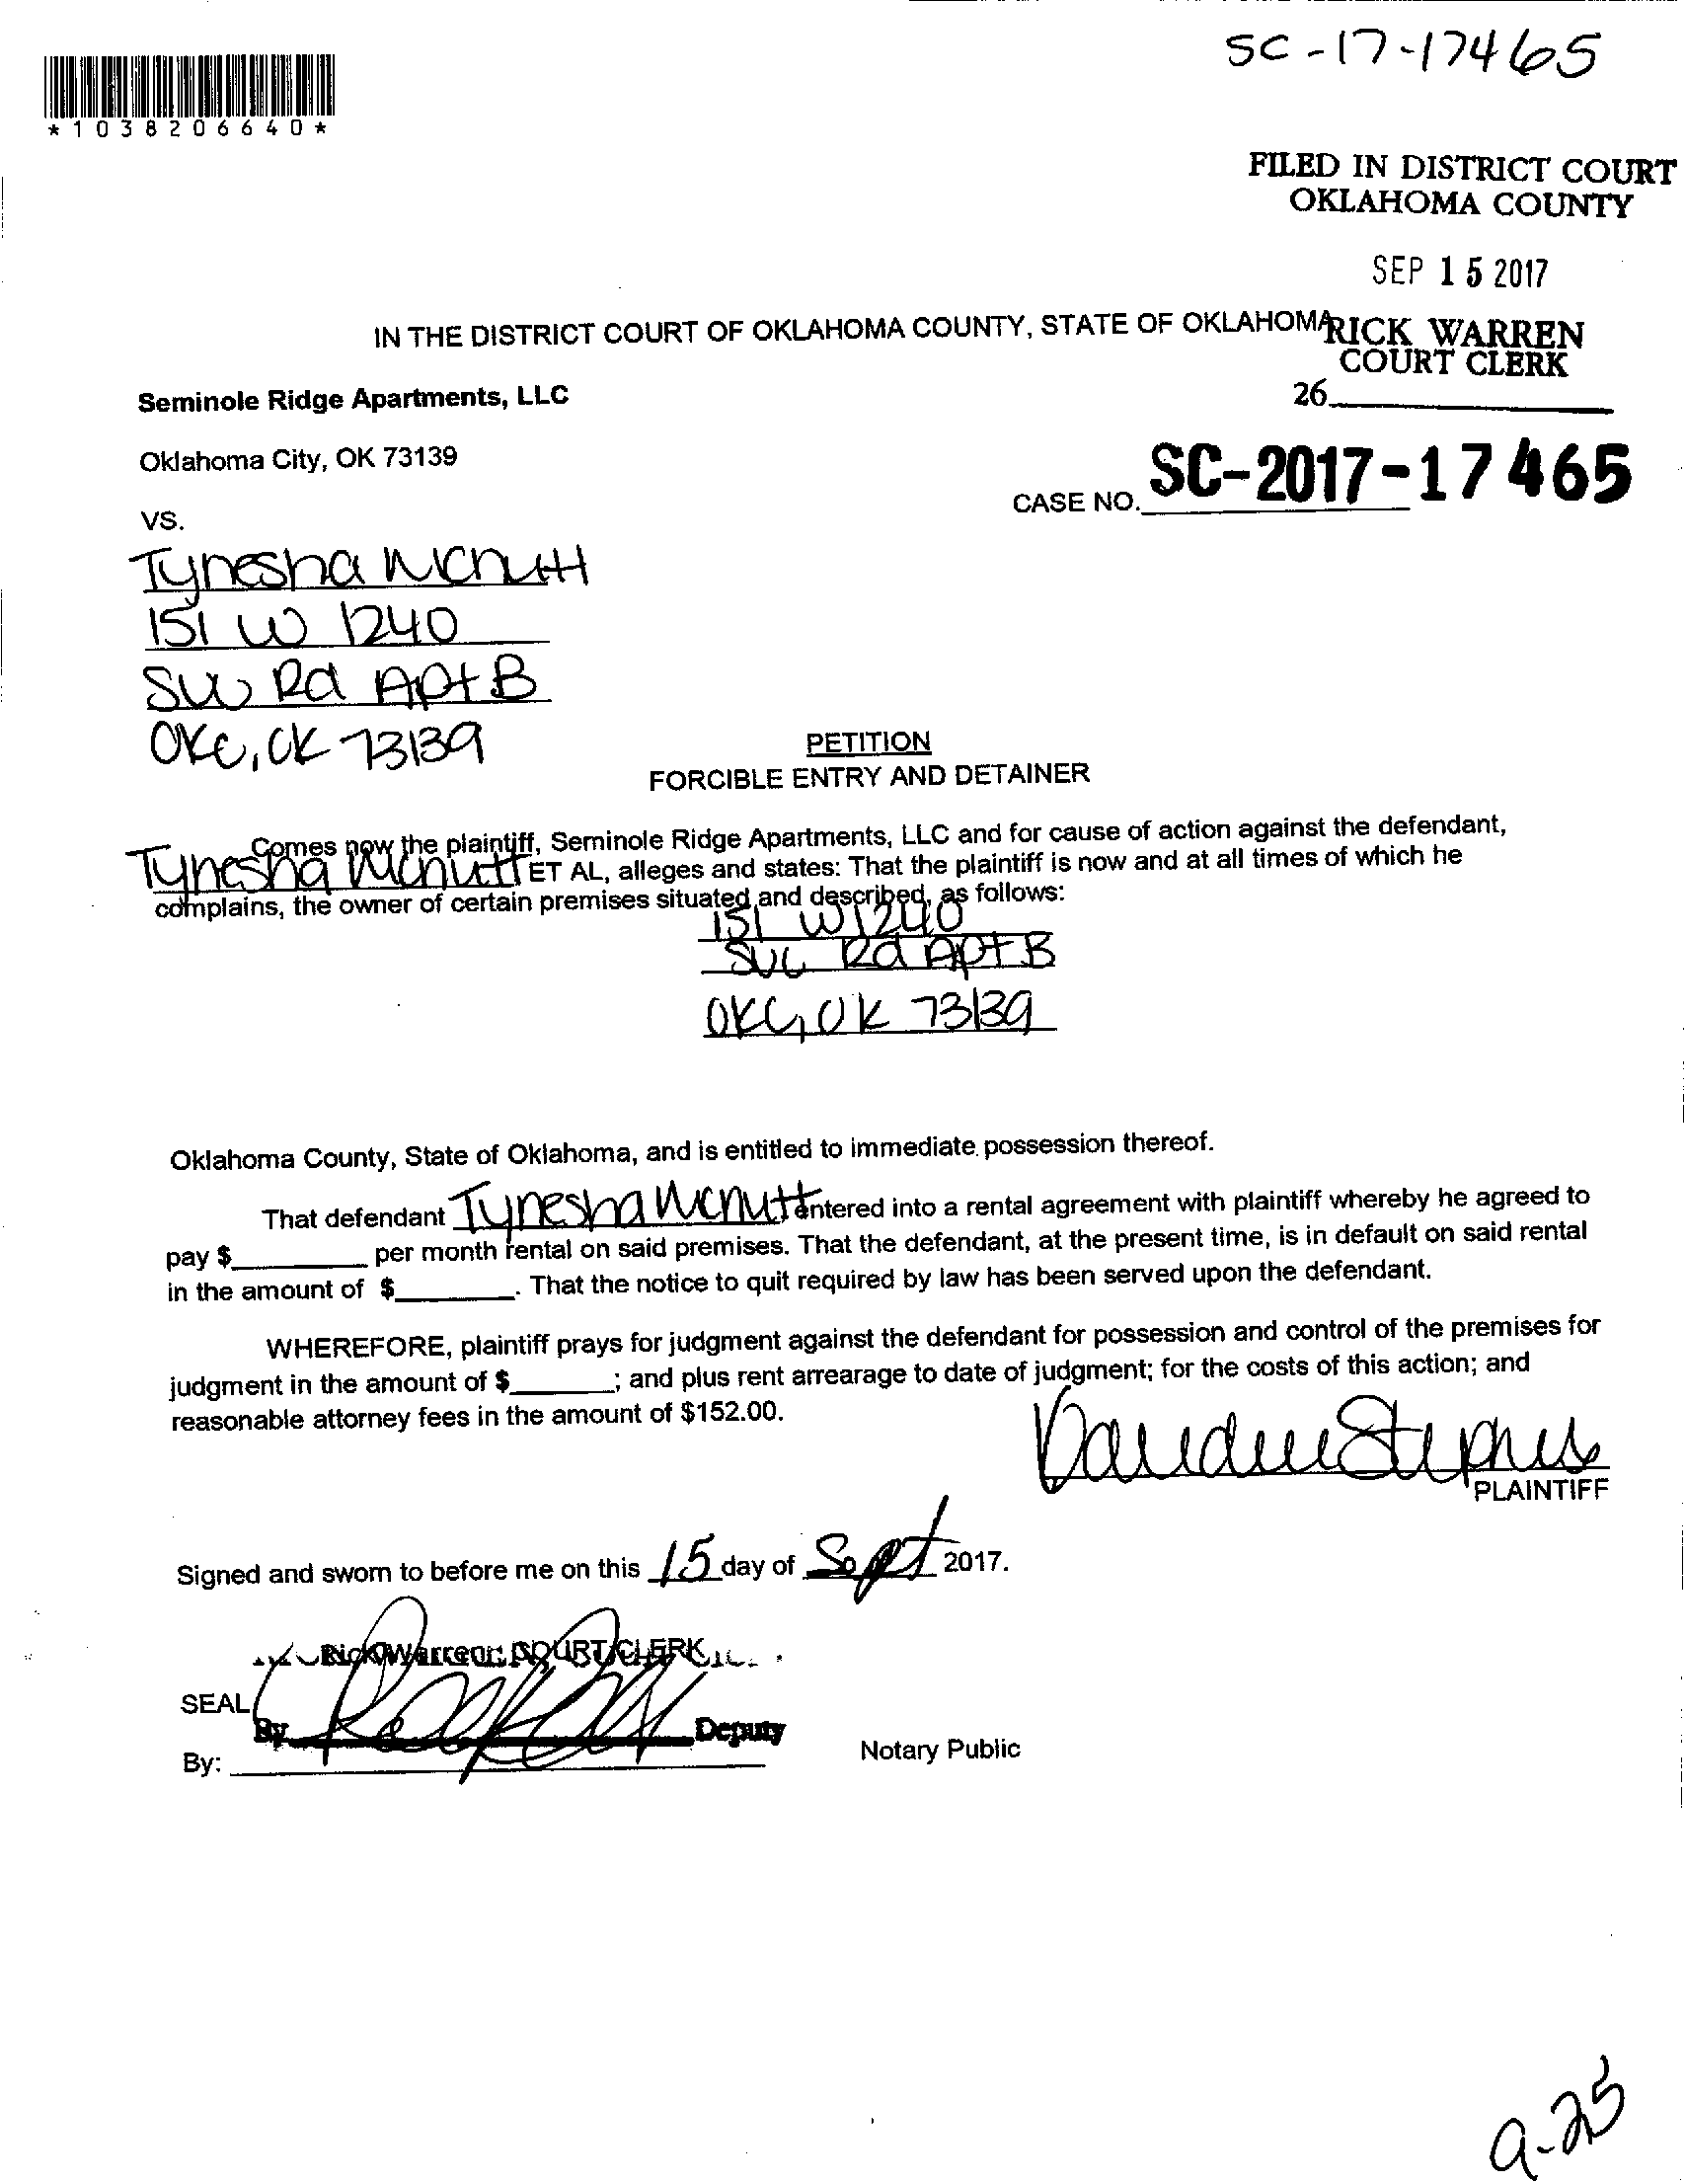 SC-17-17465
*1038206640*
FILED IN DISTRICT COURT
OKLAHOMA COUNTY
SEP 15 2017
IN THE DISTRICT COURT OF OKLAHOMA COUNTY, STATE OF OKLAHOMA
RICK WARREN
COURT CLERK
26
Seminole Ridge Apartments, LLC
Oklahoma City, OK 73139
CASE NO. SC-2017-17465
VS.
Tynesha Mcnutt
151 W 1240
SW Rd Apt B
OKC, OK 73139
PETITION
FORCIBLE ENTRY AND DETAINER
Comes now the plaintiff, Seminole Ridge Apartments, LLC and for cause of action against the defendant,
Tynesha Mcnutt ET AL, alleges and states: That the plaintiff is now and at all times of which he
complains, the owner of certain premises situated and described, as follows:
151 W 1240
Rd Apt B
OKC, OK 73139
Oklahoma County, State of Oklahoma, and is entitled to immediate possession thereof.
That defendant Tynesha Mcnutt entered into a rental agreement with plaintiff whereby he agreed to
pay $ per month rental on said premises. That the defendant, at the present time, is in default on said rental
in the amount of $ . That the notice to quit required by law has been served upon the defendant.
WHEREFORE, plaintiff prays for judgment against the defendant for possession and control of the premises for
judgment in the amount of $ ; and plus rent arrearage to date of judgment; for the costs of this action; and
reasonable attorney fees in the amount of $152.00.
PLAINTIFF
Signed and sworn to before me on this 15 day of Sept 2017.
Rick Warren, COURT CLERK
SEAL
By Deputy
By:
Notary Public
9-25